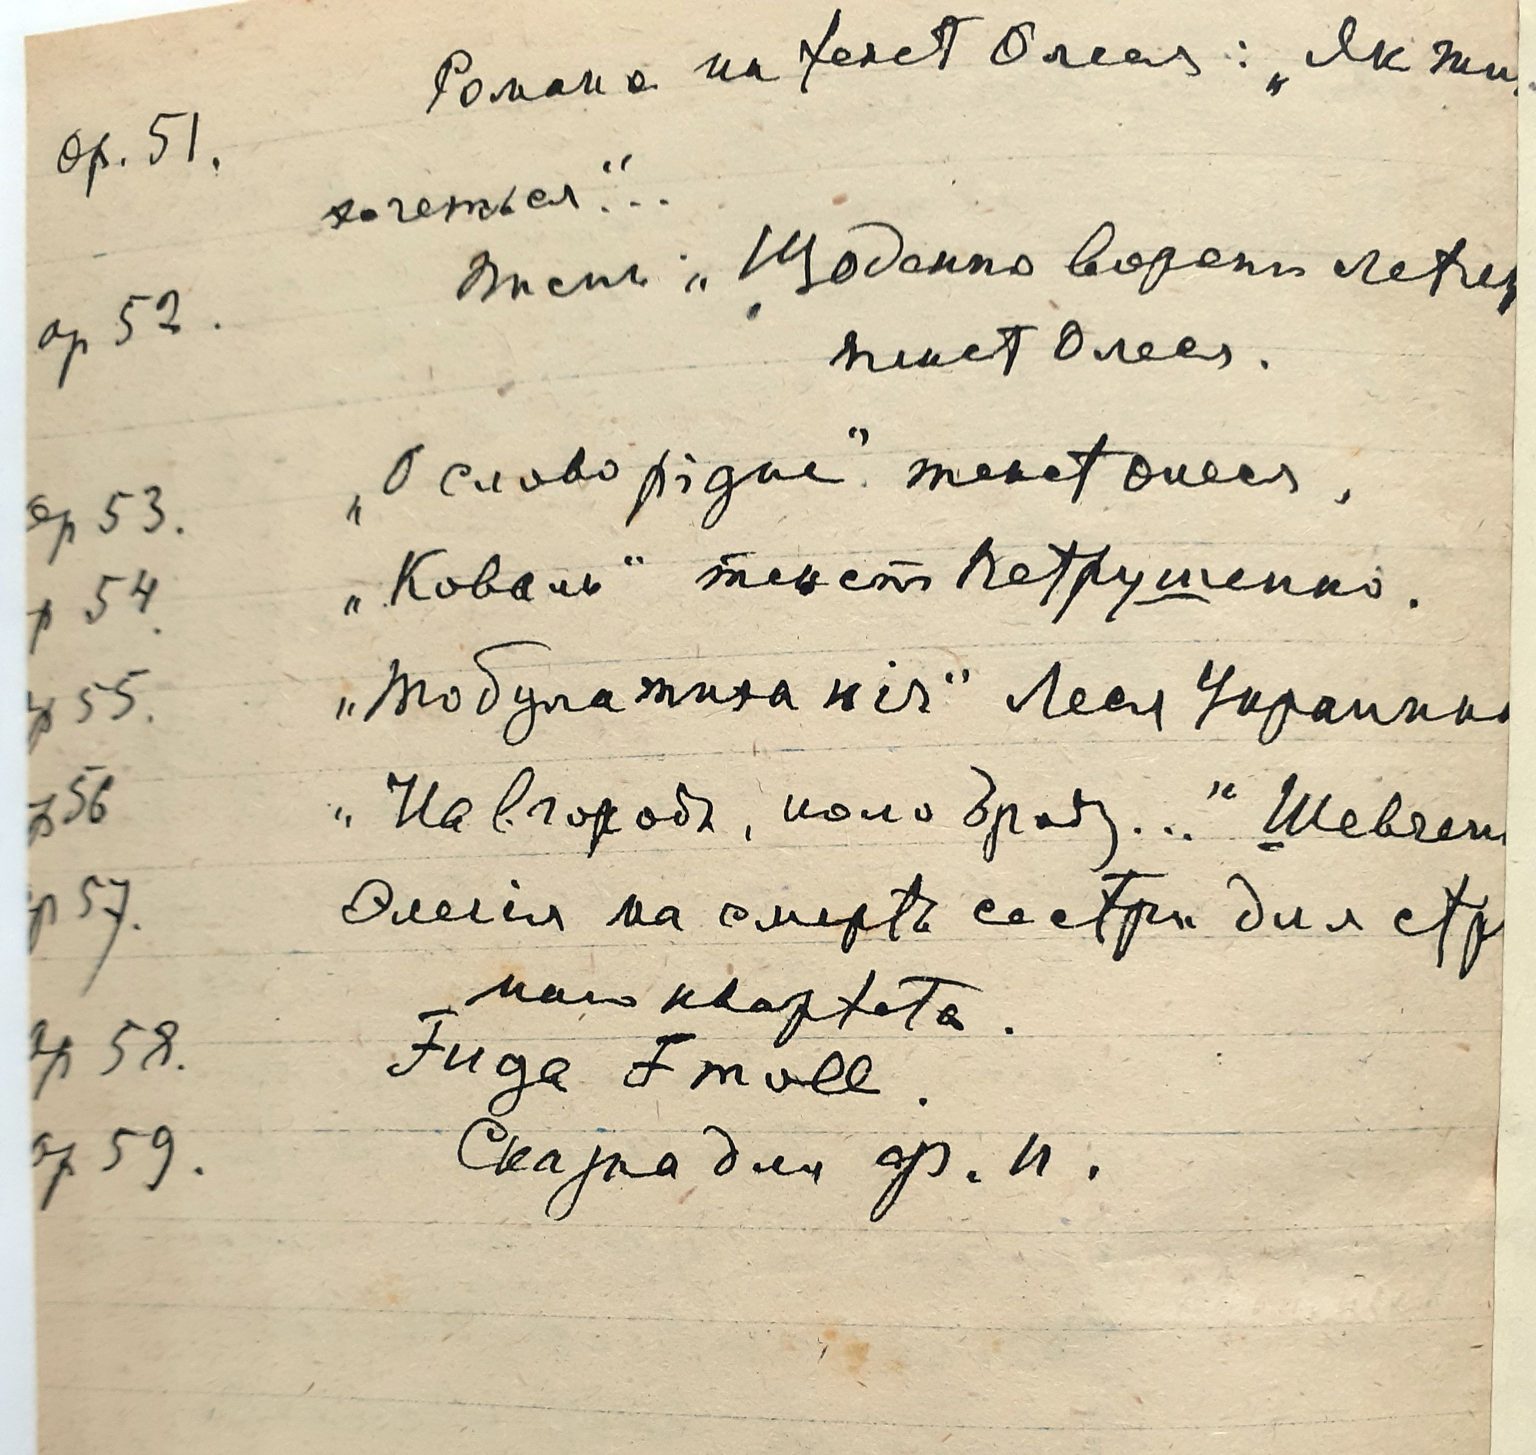 Op. 51. Романс на текст Олеся: „Як жи
хочеться“...
op 52. „Щоденно ворони летять
текст Олеся.
op 53. „О слово рідне“ текст Олеся,
p 54. „Коваль“ текст Петрушенко.
op 55. „То була тиха ніч“ Леся Украинки
p 56 „На вгороді, коло броду...“ Шевченк
op 57. Элегія на смерть сестри для стр
ного квартета.
op 58. Fuga F moll.
op 59. Сказка для ф. п.